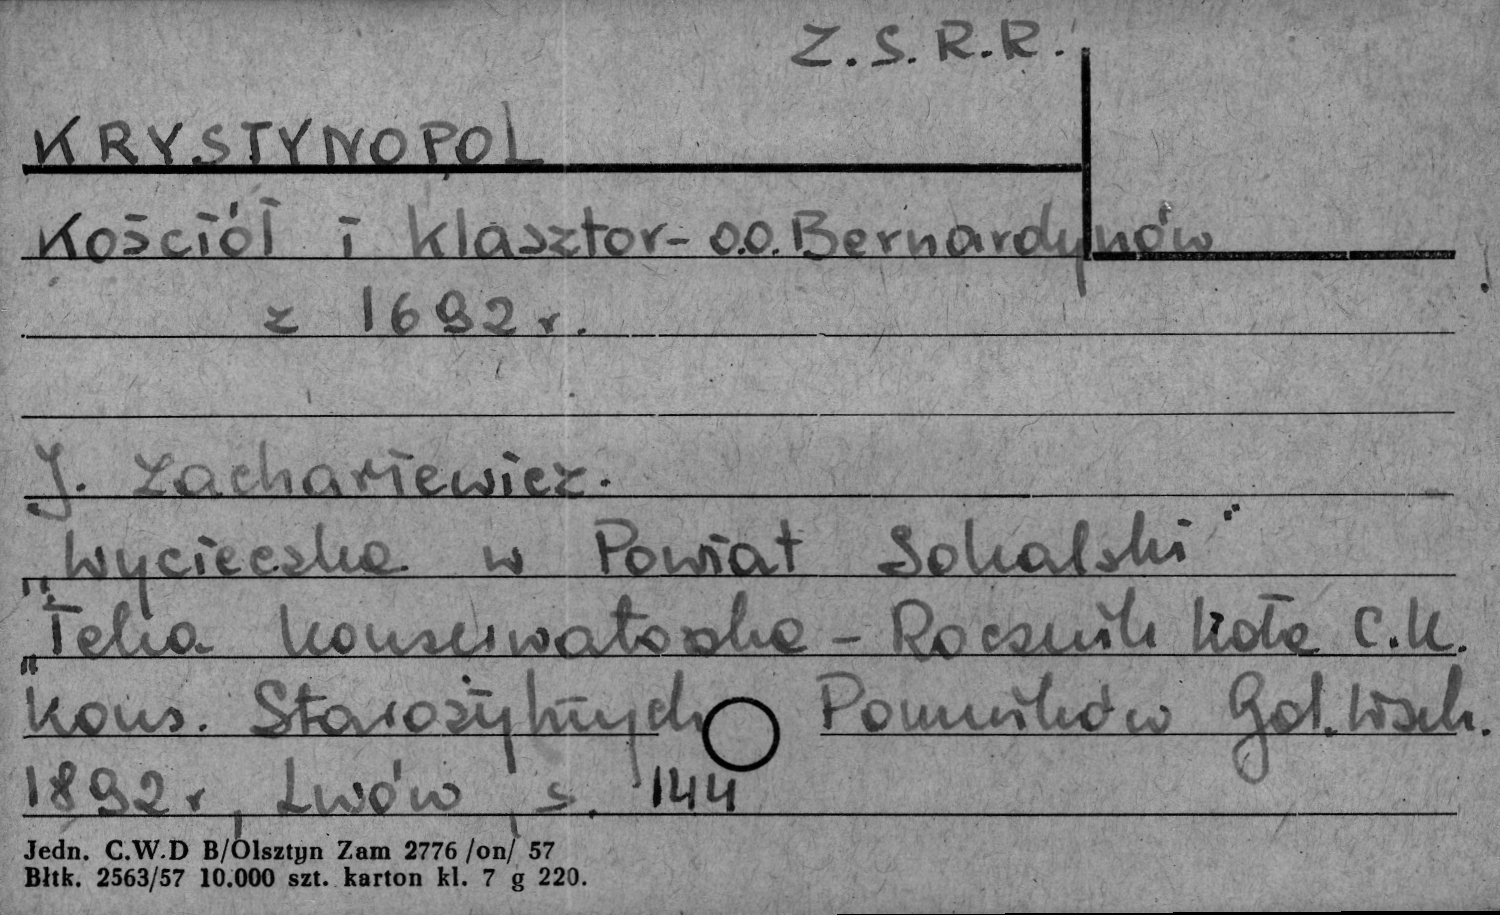 Z.S.R.R.
KRYSTYNOPOL
Kościół i klasztor - o.o. Bernardynów
z 1692 r.
J. Zachariewicz.
"Wycieczka w Powiat Sokalski"
"Teka Konserwatorska - Rocznik Koła C.K.
Kons. Starożytnych Pomników Gal. Wsch.
1892 r, Lwów, s. 144
Jedn. C.W.D B/Olsztyn Zam 2776 /on/ 57
Błtk. 2563/57 10.000 szt. karton kl. 7 g 220.